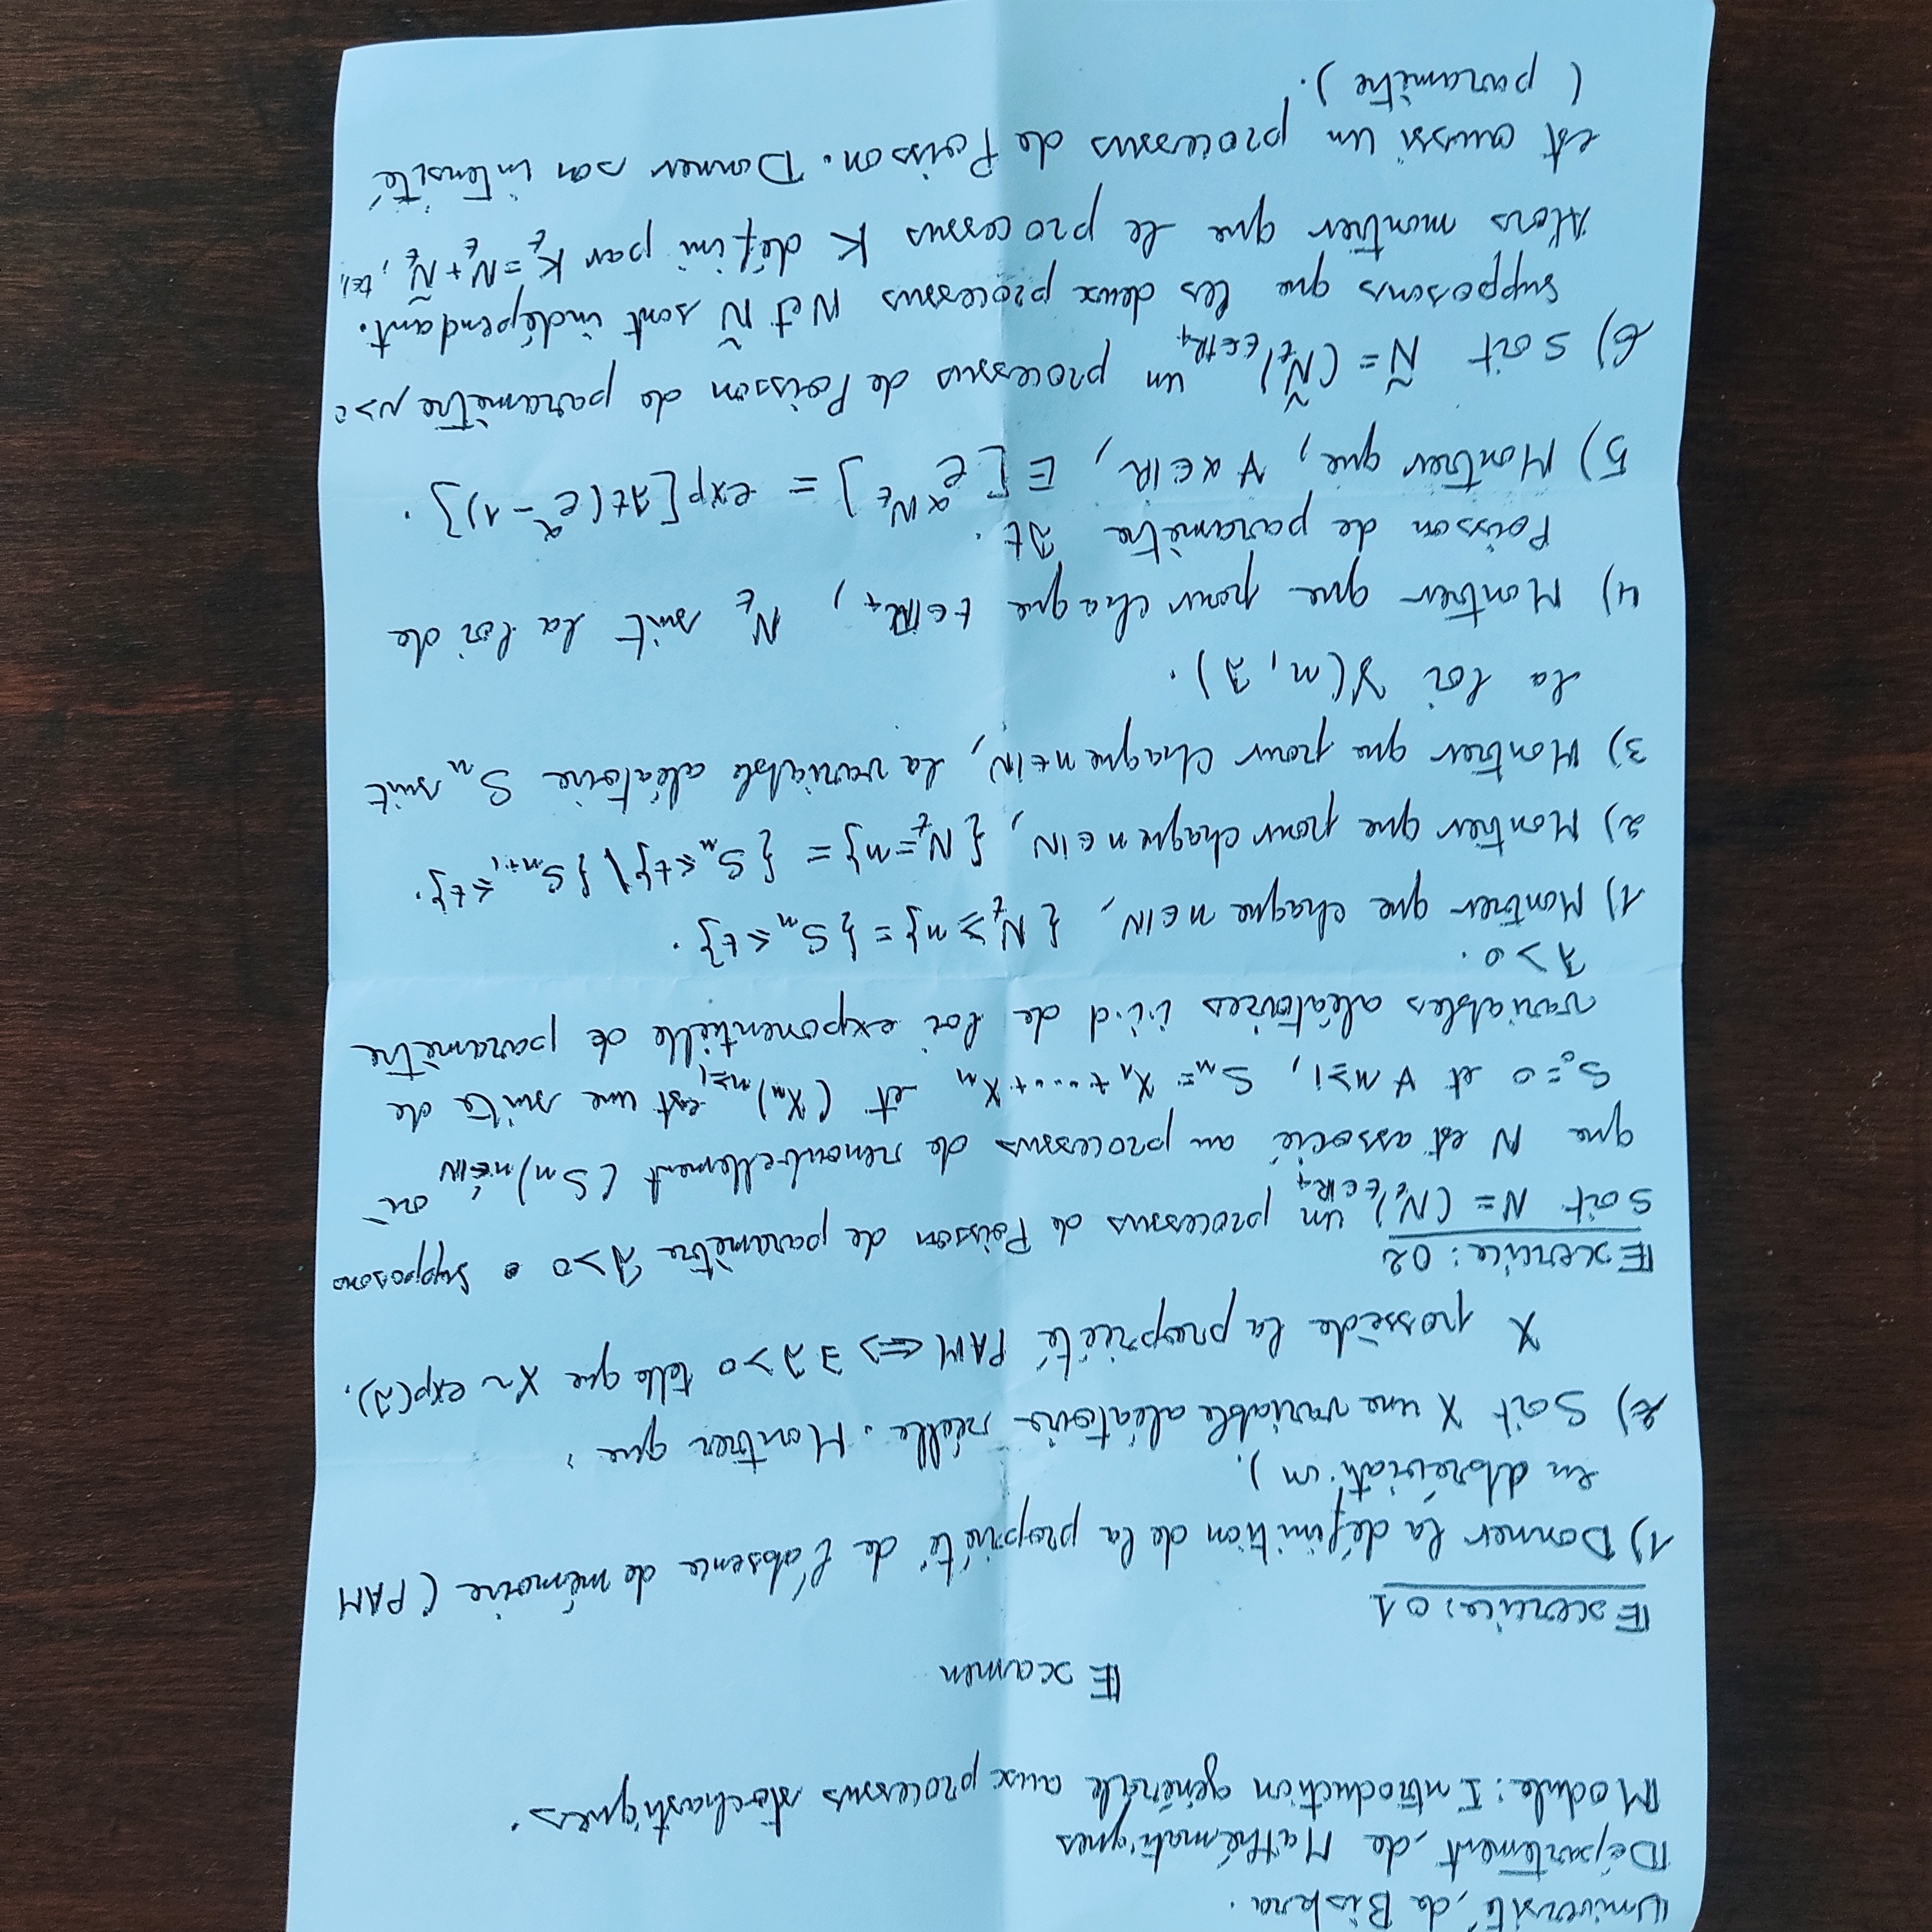 Université de Biskra.
Département de Mathématiques
Module: Introduction générale aux processus stochastiques.
Examen
Exercice: 01
1) Donner la définition de la propriété de l'absence de mémoire (PAM
en abréviation).
2) Soit X une variable aléatoire réelle. Montrer que:
X possède la propriété PAM ⟺ ∃ λ>0 telle que X ~ exp(λ).
Exercice: 02
Soit N = (N_t)_{t∈ℝ₊} un processus de Poisson de paramètre λ>0. Supposons
que N est associé au processus de renoubellement (S_n)_{n∈ℕ} où
S₀=0 et ∀ n≥1, S_n = X₁+....+X_n et (X_n)_{n≥1} est une suite de
variables aléatoires i.i.d de loi exponentielle de paramètre
λ>0.
1) Montrer que chaque n∈ℕ, {N_t ≥ n} = {S_n ≤ t}.
2) Montrer que pour chaque n∈ℕ, {N_t = n} = {S_n ≤ t} \ {S_{n+1} ≤ t}.
3) Montrer que pour chaque n∈ℕ, la variable aléatoire S_n suit
la loi γ(n, λ).
4) Montrer que pour chaque t∈ℝ₊, N_t suit la loi de
Poisson de paramètre λt.
5) Montrer que, ∀ α∈ℝ, E[e^{αN_t}] = exp[λt(e^α - 1)].
6) Soit Ñ = (Ñ_t)_{t∈ℝ₊} un processus de Poisson de paramètre μ>0
supposons que les deux processus N et Ñ sont indépendant.
Alors montrer que le processus K défini par K_t = N_t + Ñ_t,
est aussi un processus de Poisson. Donner son intensité
(paramètre).